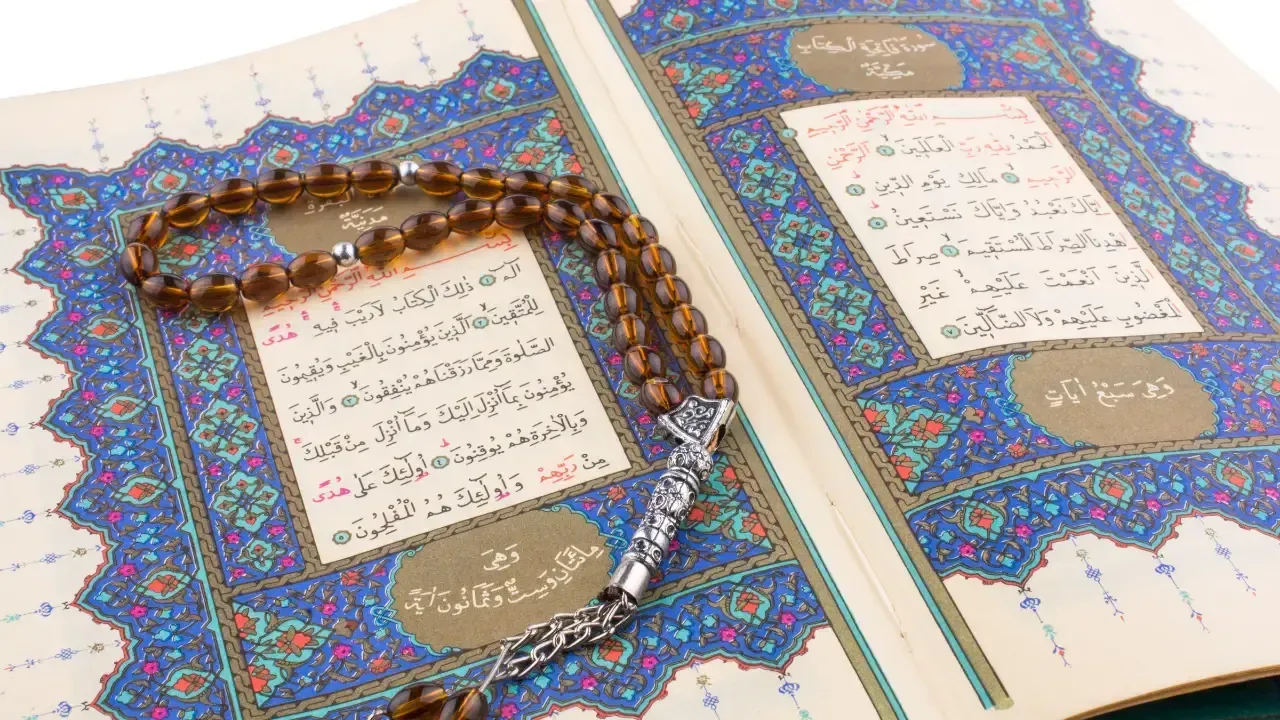 سُورَةُ فَاتِحَةِ الْكِتَابِ
مَكِيَّةٌ
بِسْمِ اللّٰهِ الرَّحْمٰنِ الرَّحِيمِ ١
اَلْحَمْدُ لِلّٰهِ رَبِّ الْعَالَمِينَ ٢ اَلرَّحْمٰنِ
الرَّحِيمِ ٣ مَالِكِ يَوْمِ الدِّينِ ٤
اِيَّاكَ نَعْبُدُ وَاِيَّاكَ نَسْتَعِينُ ٥
اِهْدِنَا الصِّرَاطَ الْمُسْتَقِيمَ ٦ صِرَاطَ
الَّذِينَ اَنْعَمْتَ عَلَيْهِمْ غَيْرِ
الْمَغْضُوبِ عَلَيْهِمْ وَلَا الضَّالِّينَ ٧
وَهِيَ سَبْعُ اٰيَاتٍ
مَدَنِيَّةٌ
بِسْمِ اللّٰهِ الرَّحْمٰنِ الرَّحِيمِ
الٓمٓ ١ ذٰلِكَ الْكِتَابُ لَا رَيْبَ فِيهِ هُدًى
لِلْمُتَّقِينَ ٢ اَلَّذِينَ يُؤْمِنُونَ بِالْغَيْبِ وَيُقِيمُونَ
الصَّلٰوةَ وَمِمَّا رَزَقْنَاهُمْ يُنْفِقُونَ ٣ وَالَّذِينَ
يُؤْمِنُونَ بِمَٓا اُنْزِلَ اِلَيْكَ وَمَٓا اُنْزِلَ مِنْ قَبْلِكَ
وَبِالْاٰخِرَةِ هُمْ يُوقِنُونَ ٤ اُو۬لٰٓئِكَ عَلٰى هُدًى
مِنْ رَبِّهِمْ وَاُو۬لٰٓئِكَ هُمُ الْمُفْلِحُونَ ٥
وَهِيَ
مِائَتَانِ وَسِتٌّ وَثَمَانُونَ اٰيَةً